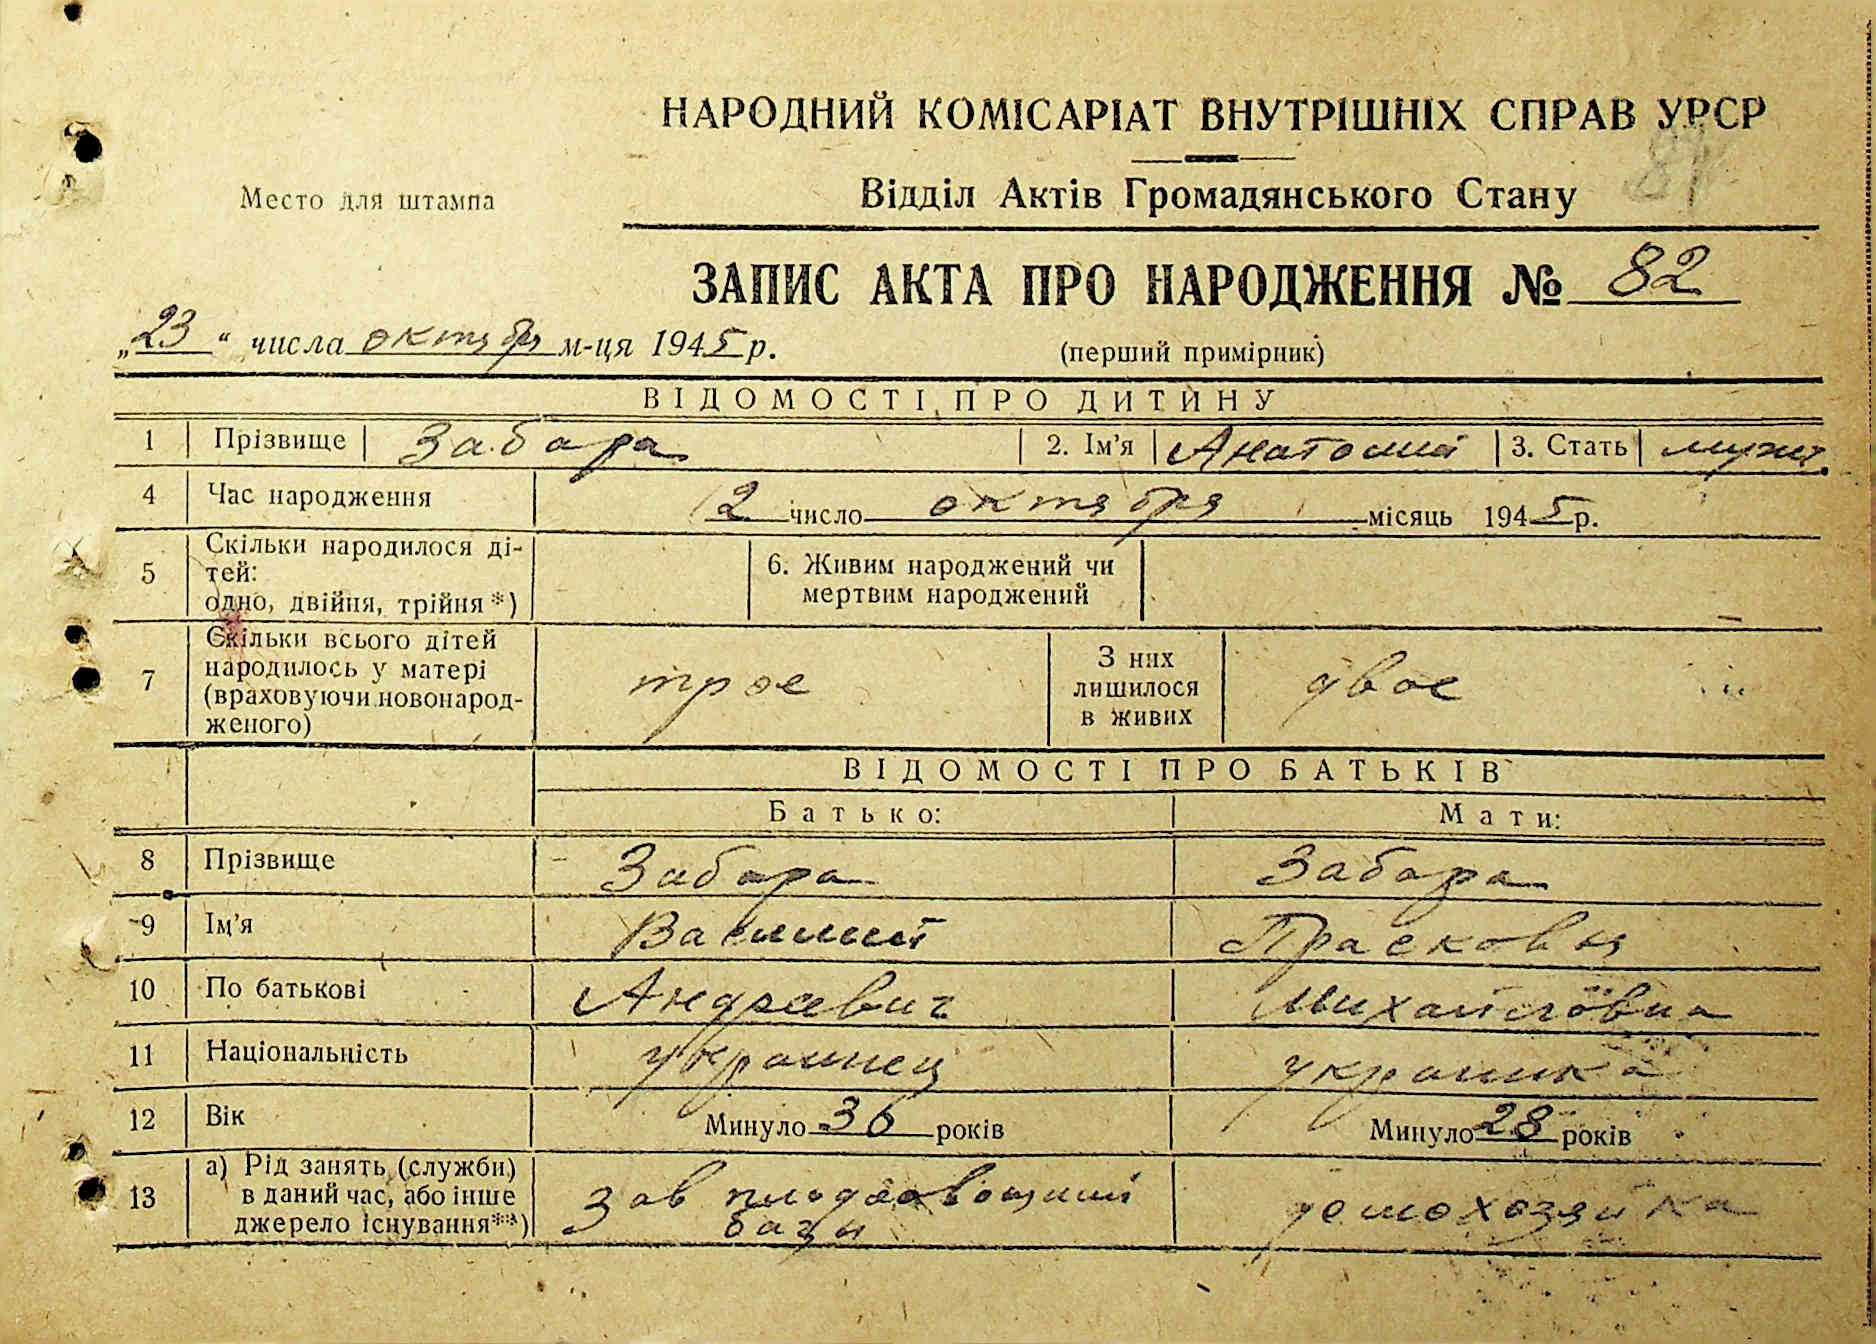 НАРОДНИЙ КОМІСАРІАТ ВНУТРІШНІХ СПРАВ УРСР
Место для штампа
Відділ Актів Громадянського Стану
ЗАПИС АКТА ПРО НАРОДЖЕННЯ № 82
„23“ числа октября м-ця 1945 р.
(перший примірник)
ВІДОМОСТІ ПРО ДИТИНУ
1 Прізвище Забара 2. Ім'я Анатолий 3. Стать мужс.
4 Час народження 2 число октября місяць 1945 р.
5 Скільки народилося ді-
тей:
одно, двійня, трійня*)
6. Живим народжений чи
мертвим народжений
7 Скільки всього дітей
народилось у матері
(враховуючи новонарод-
женого)
трое
З них
лишилося
в живих
двое
ВІДОМОСТІ ПРО БАТЬКІВ
Батько: Мати:
8 Прізвище Забара Забара
9 Ім'я Василий Прасковья
10 По батькові Андреевич Михайловна
11 Національність украинец украинка
12 Вік Минуло 36 років Минуло 28 років
13 а) Рід занять (служби)
в даний час, або інше
джерело існування**)
Зав плодоовощный
базы
домохозяйка